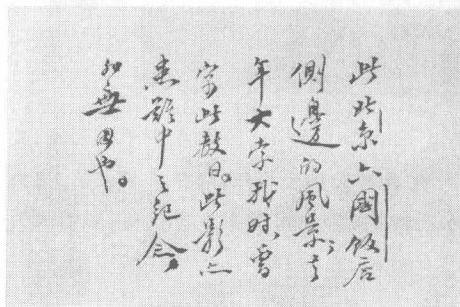 此北京六國飯店
側邊的風景,去
年大索我時,曾
寓此數日。此影亦
患難中之紀念,
無因也。